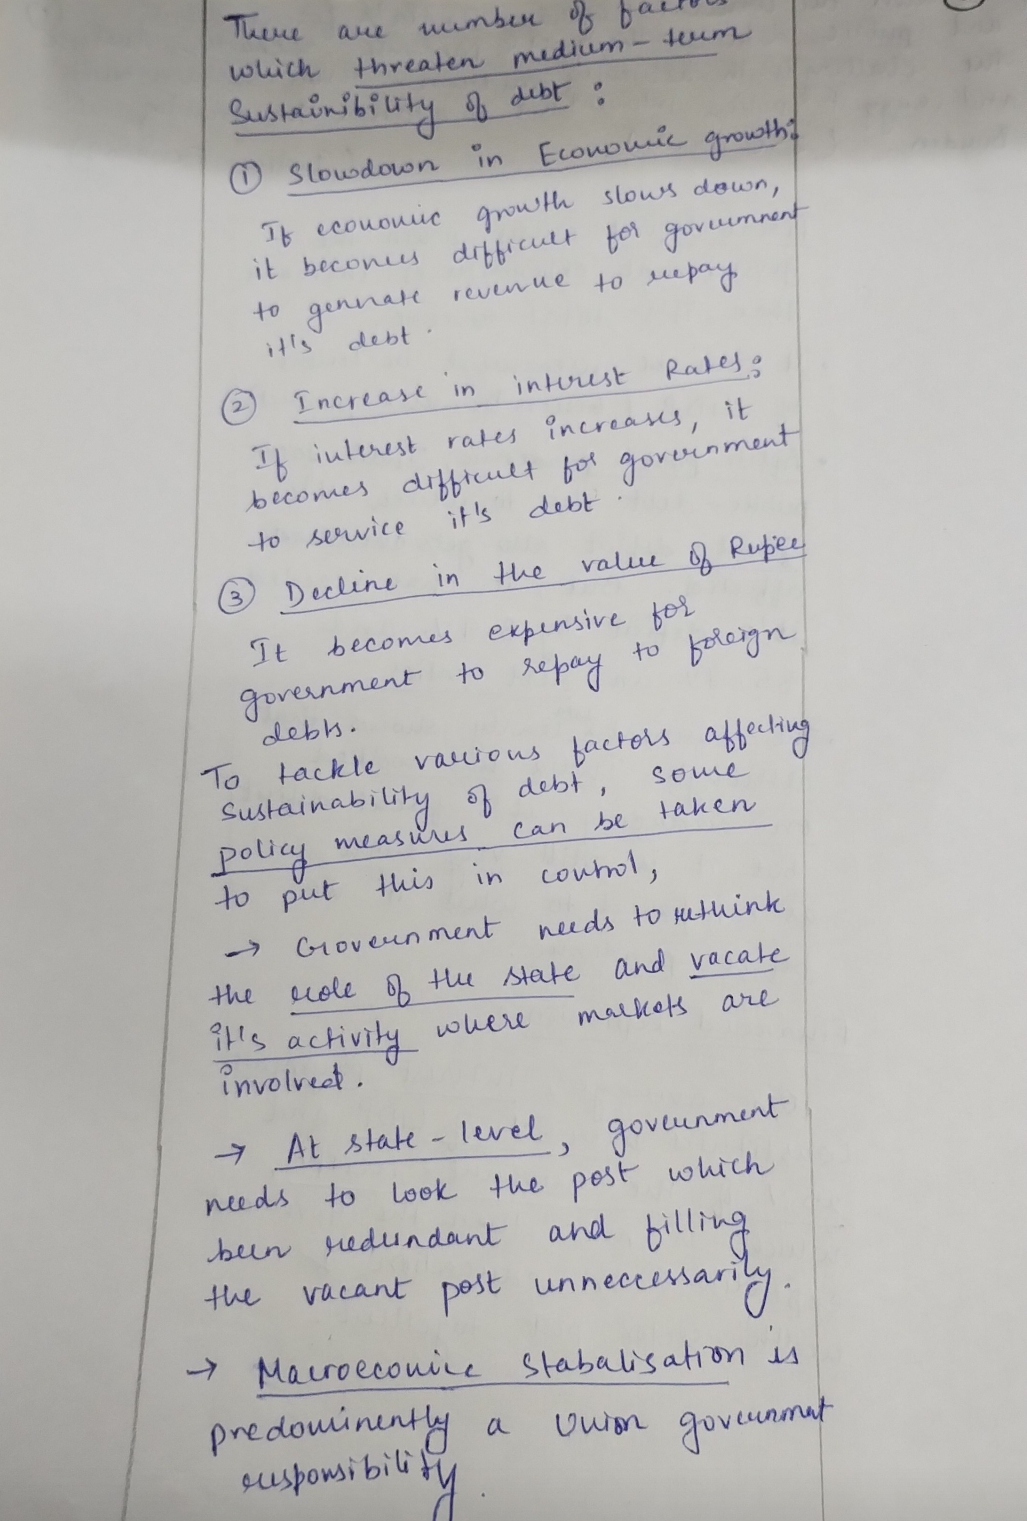 There are number of factors
which threaten medium-term
Sustainibility of debt :
① Slowdown in Economic growth:
If economic growth slows down,
it becomes difficult for government
to genrate revenue to repay
it's debt.
② Increase in interest Rates:
If interest rates increases, it
becomes difficult for government
to service it's debt.
③ Decline in the value of Rupee
It becomes expensive for
government to repay to foreign
debts.
To tackle various factors affecting
sustainability of debt, some
policy measures can be taken
to put this in control,
→ Government needs to rethink
the role of the state and vacate
it's activity where markets are
involved.
→ At state-level, government
needs to look the post which
been redundant and filling
the vacant post unneccessarily.
→ Macroeconomic Stabalisation is
predominently a Union government
responsibility.